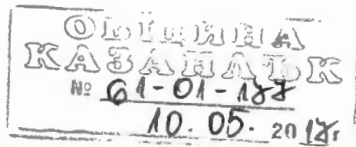 ОБЩИНА
КАЗАНЛЪК
№ 61-01-188
10. 05. 2018г